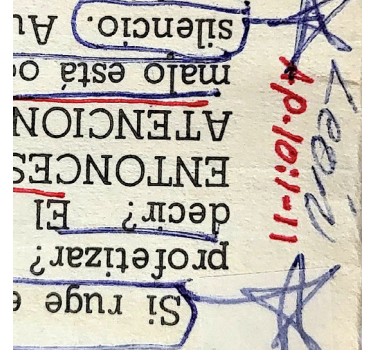 Si ruge e
profetizar?
decir? El
ENTONCES
ATENCION
malo está o
silencio. Au
Ap. 10:1-11